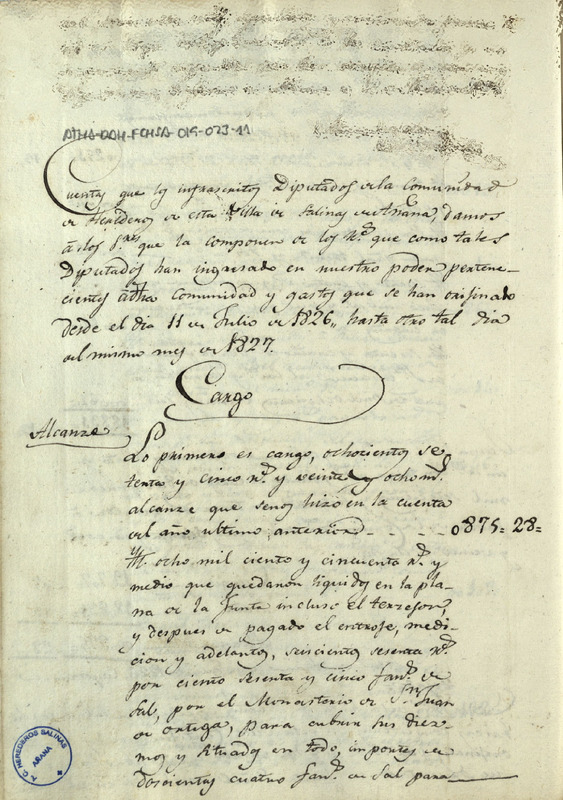 ATHA-DAH-FCHSA-015-023-11
Cuentas que los infrascritos Diputados de la Comunidad
de Herederos de esta Villa de Salinas de Añana, damos
á los S.res que la componen de los R.s que como tales
Diputados han ingresado en nuestro poder pertene-
cientes á dha Comunidad y gastos que se han orijinado
desde el dia 11 de Julio de 1826,, hasta otro tal dia
del mismo mes de 1827.
Cargo
Alcanze
Lo primero es cargo, ochocientos se
tenta y cinco r.s y veinte y ocho m.s
alcanze que senos hizo en la cuenta
del año ultimo, anterior - - - - 0875= 28=
Yt. ocho mil ciento y cincuenta r.s y
medio que quedaron liquidos en la pla-
na de la Junta incluso el terrason,
y despues de pagado el entroje, medi-
cion y adelantos, seiscientos sesenta r.s
por ciento sesenta y cinco fan.s de
Sal, por el Monasterio de S.n Juan
de ortega, para cubrir sus diez-
mos y situados en todo, importes de
doscientas cuatro fan.s de Sal para
A.C. HEREDEROS SALINAS
AÑANA